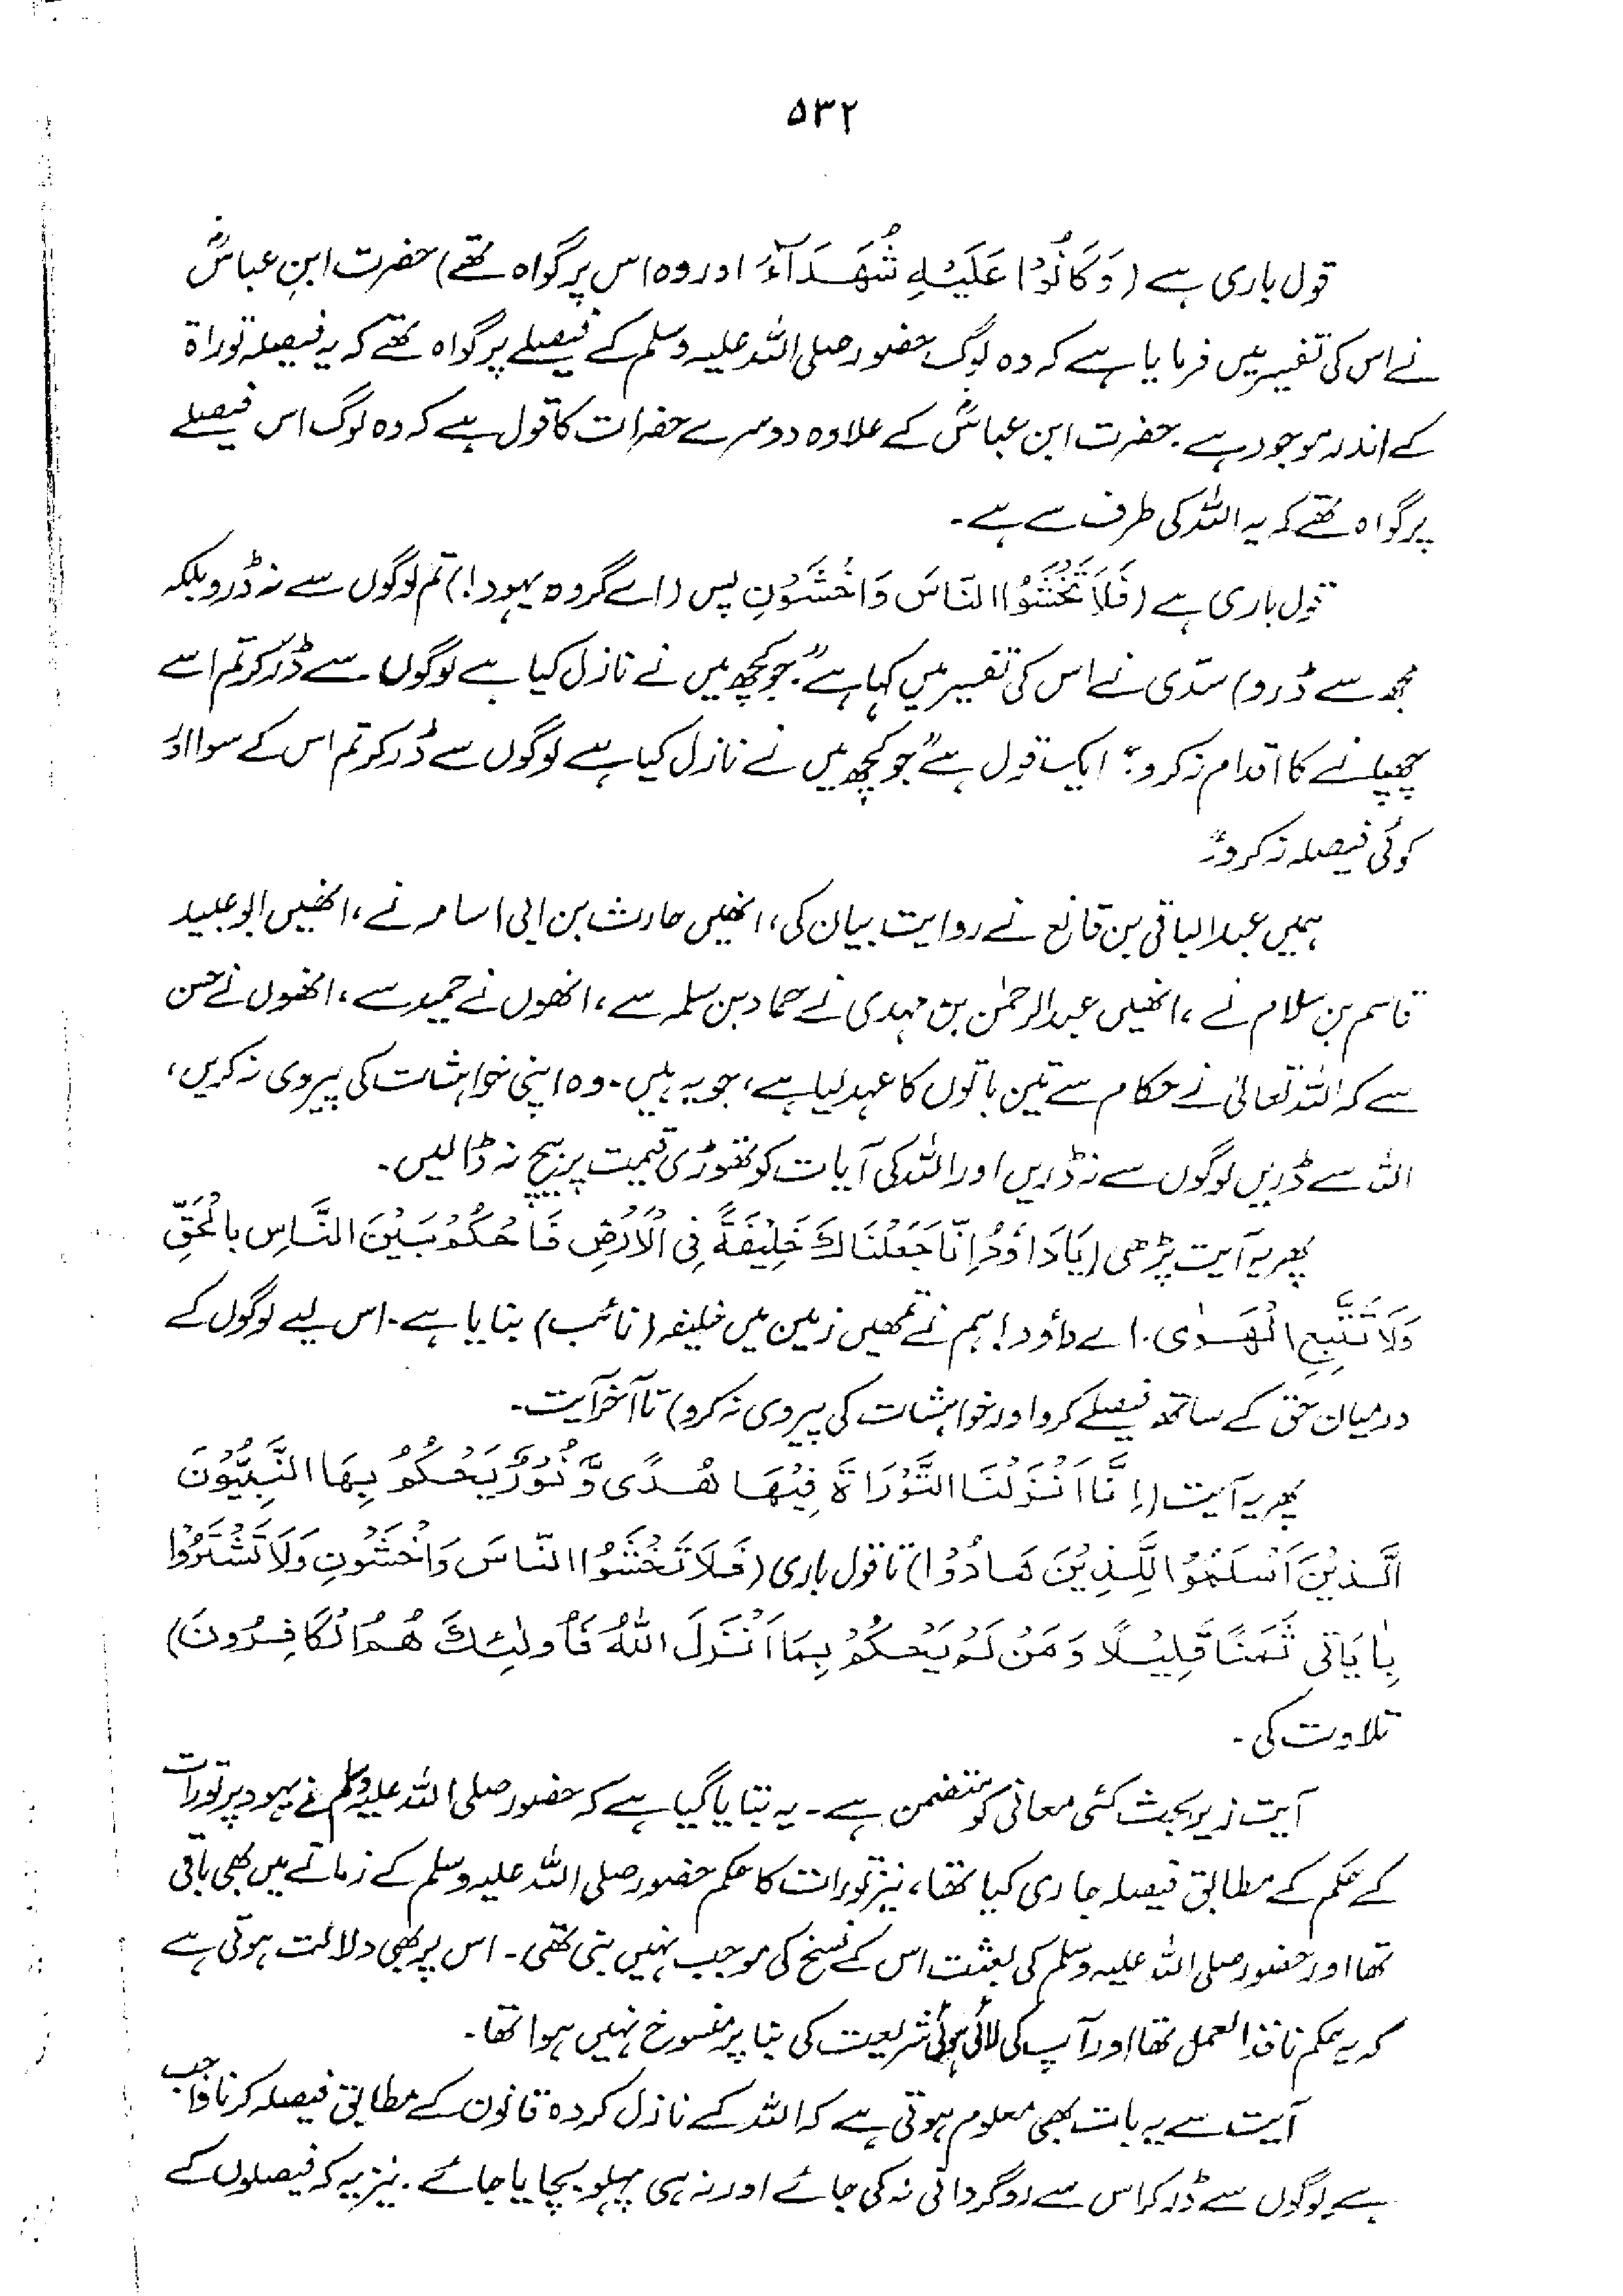 ۵۳۲
قول باری ہے (وَكَانُوْا عَلَيْهِ شُهَدَآءَ اور وہ اس پر گواہ تھے) حضرت ابنِ عباسؓ
نے اس کی تفسیر میں فرمایا ہے کہ وہ لوگ حضور صلی اللہ علیہ وسلم کے فیصلے پر گواہ تھے کہ یہ فیصلہ توراۃ
کے اندر موجود ہے۔ حضرت ابن عباسؓ کے علاوہ دوسرے حضرات کا قول ہے کہ وہ لوگ اس فیصلے
پر گواہ تھے کہ یہ اللہ کی طرف سے ہے۔
قول باری ہے (فَلَا تَخْشَوُا النَّاسَ وَاخْشَوْنِ پس (اے گروہ یہود!) تم لوگوں سے نہ ڈرو بلکہ
مجھ سے ڈرو) سدّی نے اس کی تفسیر میں کہا ہے "جو کچھ میں نے نازل کیا ہے لوگوں سے ڈر کر تم اسے
چھپانے کا اقدام نہ کرو"؛ ایک قول ہے "جو کچھ میں نے نازل کیا ہے لوگوں سے ڈر کر تم اس کے سوا اور
کوئی فیصلہ نہ کرو"۔
ہمیں عبدالباقی بن قانع نے روایت بیان کی، انھیں حارث بن ابی اسامہ نے، انھیں ابوعبید
قاسم بن سلام نے، انھیں عبدالرحمٰن بن مہدی نے حماد بن سلمہ سے، انھوں نے حمید سے، انھوں نے حسن
سے کہ اللہ تعالیٰ نے حکام سے تین باتوں کا عہد لیا ہے، جو یہ ہیں۔ وہ اپنی خواہشات کی پیروی نہ کریں،
اللہ سے ڈریں لوگوں سے نہ ڈریں اور اللہ کی آیات کو تھوڑی قیمت پر بیچ نہ ڈالیں۔
پھر یہ آیت پڑھی (يَا دَاوُدُ اِنَّا جَعَلْنَاكَ خَلِيْفَةً فِى الْاَرْضِ فَاحْكُمْ بَيْنَ النَّاسِ بِالْحَقِّ
وَلَا تَتَّبِعِ الْهَوٰى۔ اے داؤد! ہم نے تمھیں زمین میں خلیفہ (نائب) بنایا ہے۔ اس لیے لوگوں کے
درمیان حق کے ساتھ فیصلے کرو اور خواہشات کی پیروی نہ کرو) تا آخر آیت۔
پھر یہ آیت (اِنَّا اَنْزَلْنَا التَّوْرَاةَ فِيْهَا هُدًى وَّنُوْرٌ يَحْكُمُ بِهَا النَّبِيُّوْنَ
الَّذِيْنَ اَسْلَمُوْا لِلَّذِيْنَ هَادُوْا) تا قول باری (فَلَا تَخْشَوُا النَّاسَ وَاخْشَوْنِ وَلَا تَشْتَرُوْا
بِاٰيَاتِى ثَمَنًا قَلِيْلًا وَمَنْ لَمْ يَحْكُمْ بِمَا اَنْزَلَ اللّٰهُ فَاُولٰئِكَ هُمُ الْكَافِرُوْنَ)
تلاوت کی۔
آیت زیر بحث کئی معانی کو متضمن ہے۔ یہ بتایا گیا ہے کہ حضور صلی اللہ علیہ وسلم نے یہود پر تورات
کے حکم کے مطابق فیصلہ جاری کیا تھا، نیز تورات کا حکم حضور صلی اللہ علیہ وسلم کے زمانے میں بھی باقی
تھا اور حضور صلی اللہ علیہ وسلم کی بعثت اس کے نسخ کی موجب نہیں بنی تھی۔ اس پر بھی دلالت ہوتی ہے
کہ یہ حکم نافذ العمل تھا اور آپ کی لائی ہوئی شریعت کی بنا پر منسوخ نہیں ہوا تھا۔
آیت سے یہ بات بھی معلوم ہوتی ہے کہ اللہ کے نازل کردہ قانون کے مطابق فیصلہ کرنا واجب
ہے لوگوں سے ڈر کر اس سے روگردانی نہ کی جائے اور نہ ہی پہلو بچایا جائے۔ نیز یہ کہ فیصلوں کے